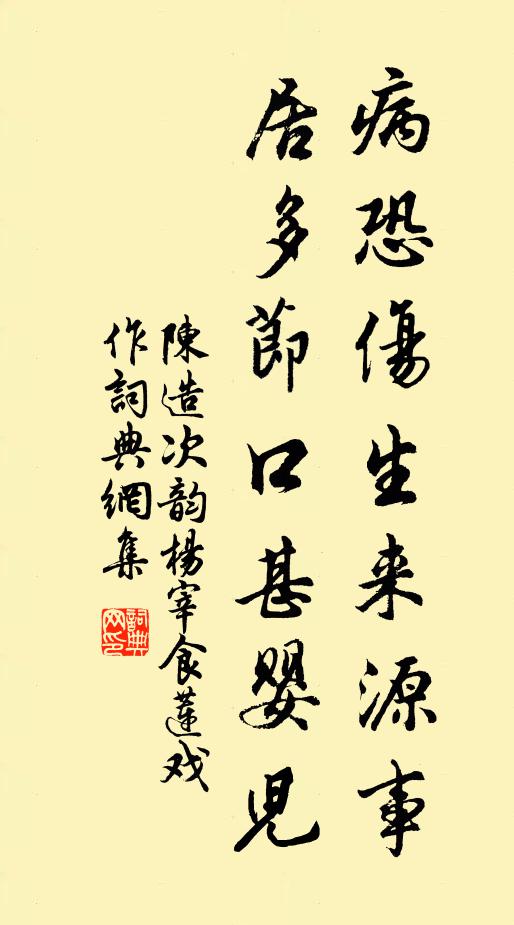 病恐傷生来源事
居多節口甚嬰兒
陳造次韵楊宰食蓮戏
作詞典網集
詞典網印